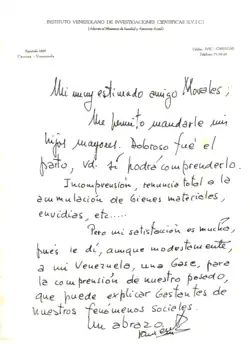 INSTITUTO VENEZOLANO DE INVESTIGACIONES CIENTIFICAS (I.V.I.C.)
Apartado 1827
Caracas - Venezuela
Mi muy estimado amigo Morales;
Me permito mandarle mi
hijos mayores. Doloroso fué el
parto, Vd. sí podrá comprenderlo.
Incomprensión, renuncia total a la
acumulación de bienes materiales,
envidias, etc....
Pero mi satisfacción es mucha,
pués le dí, aunque modestamente,
a mi Venezuela, una base, para
la comprensión de nuestro pasado,
que puede explicar bastantes de
nuestros fenómenos sociales.
Un abrazo